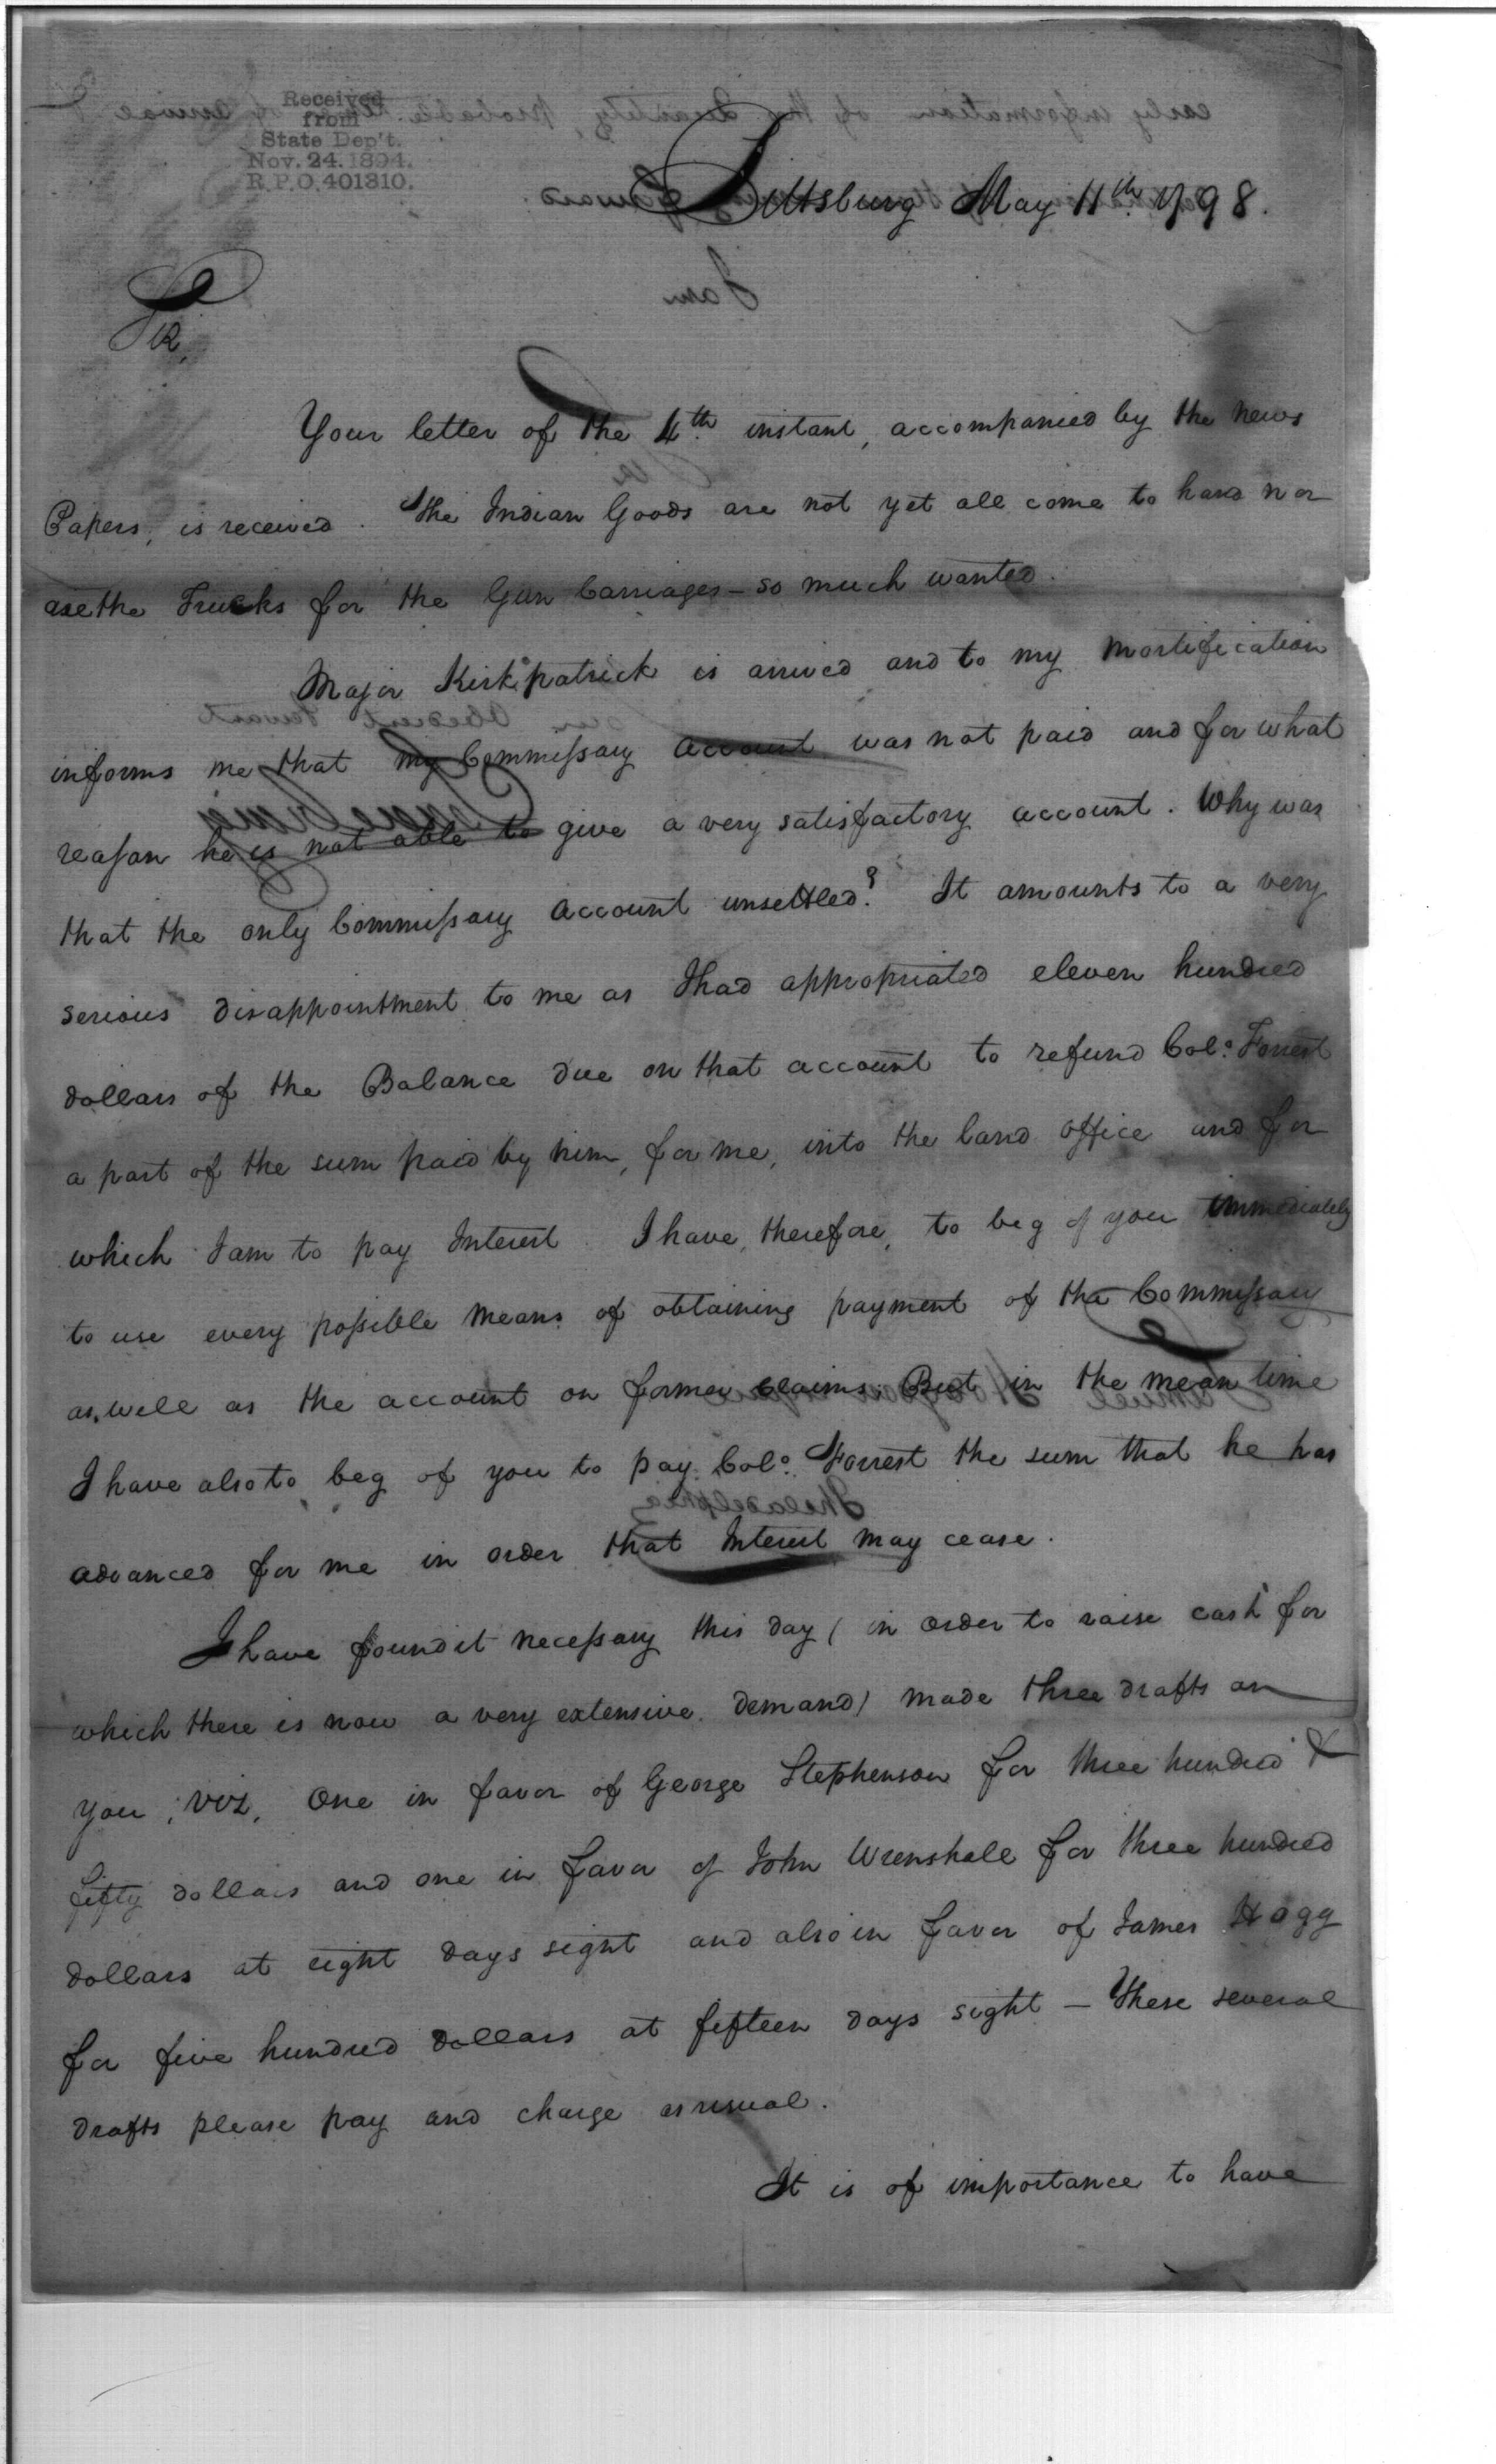 Received
from
State Dep't.
Nov. 24. 1894.
R.P.O. 401310.
Pittsburg May 11th. 1798.
Sir,
Your letter of the 4th. instant, accompanied by the News
Papers, is received. The Indian Goods are not yet all come to hand nor
are the Trucks for the Gun Carriages – so much wanted.
Major Kirkpatrick is arrived and to my Mortification
informs me that my Commissary Account was not paid and for what
reason he is not able to give a very satisfactory account. Why was
that the only Commissary Account unsettled? It amounts to a very
serious disappointment to me as I had appropriated eleven hundred
dollars of the Balance due on that account to refund Colo. Forrest
a part of the sum paid by him, for me, into the land office and for
which I am to pay Interest. I have, therefore, to beg of you immediately
to use every possible means of obtaining payment of the Commissary
as well as the account on former Claims. But in the mean time
I have also to beg of you to pay Colo. Forrest the sum that he has
advanced for me in order that Interest may cease.
I have found it necessary this day (in order to raise cash for
which there is now a very extensive demand) made three drafts on
you, viz, One in favor of George Stephenson for three hundred &
fifty dollars and one in favor of John Wrenshall for three hundred
dollars at eight days sight and also in favor of James Hogg
for five hundred dollars at fifteen days sight – These several
drafts please pay and charge as usual.
It is of importance to have